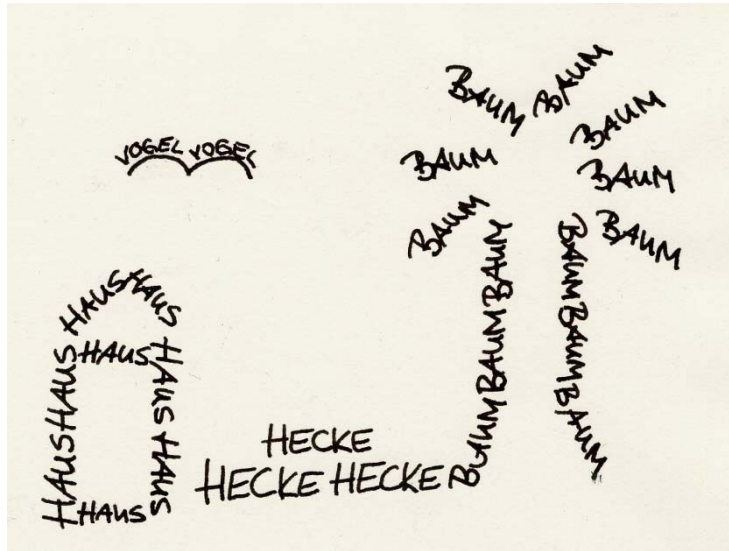 BAUM
BAUM
BAUM
VOGEL VOGEL
BAUM
BAUM
BAUM
BAUM
BAUMBAUMBAUM
BAUMBAUMBAUM
HAUSHAUS
HAUS
HAUSHAUS
HAUS HAUS
HAUS
HECKE
HECKE HECKE